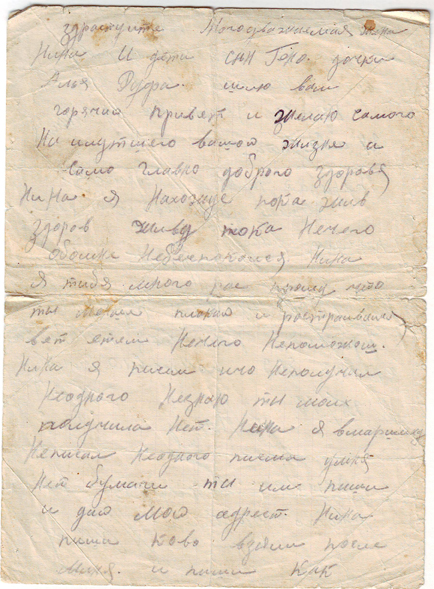 здраствуите Многоуважаемая жена
Нина И дети сын Гера. дочки
Аля Руфа. шлю вам
горячий привет и желаю самого
На илутшего вашой жизне и
само главно доброго здоровя
Нина я Нахожус пока жив
здоров живу пока Нечего
Небеспокойся Нина
Я тибя много рас прошу что
ты плакая и ростраивайся
вет етем Нечего Непоможош.
Нина я писем ичо Неполучал
Неодного Незнаю ты моих
получила Нет. Нина я
Неписал Неодного писма
Нет бумаги ты им пиши
и дай мой адрест. Нина
пиши ково взяли после
миня. и пиши как